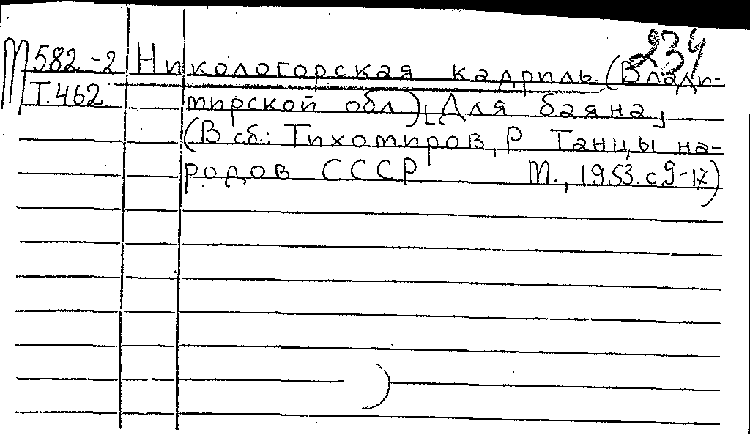 234
М 582-2 Никологорская кадриль (Влади-
Т.462 мирской обл) [Для баяна]
(В сб.: Тихомиров, Р Танцы на-
родов СССР М., 1953. с 9-17)